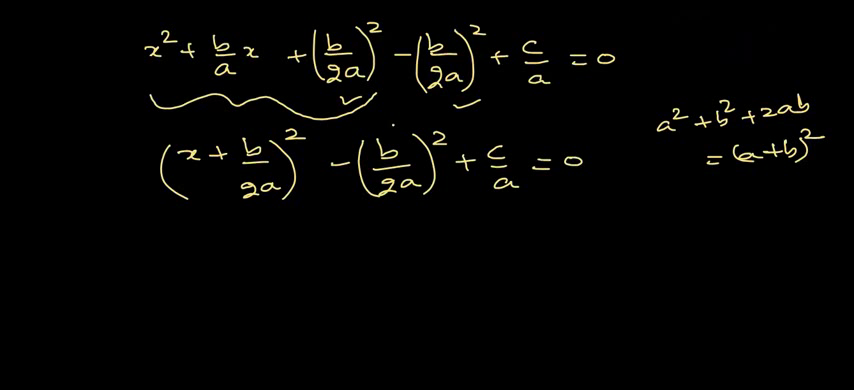 x² + b/a x + (b/2a)² - (b/2a)² + c/a = 0
(x + b/2a)² - (b/2a)² + c/a = 0
a² + b² + 2ab
= (a+b)²